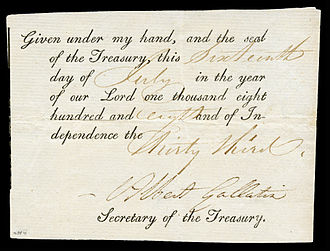 Given under my hand, and the seal
of the Treasury, this Sixteenth
day of July in the year
of our Lord one thousand eight
hundred and eight and of In-
dependence the Thirty third.
Albert Gallatin
Secretary of the Treasury.